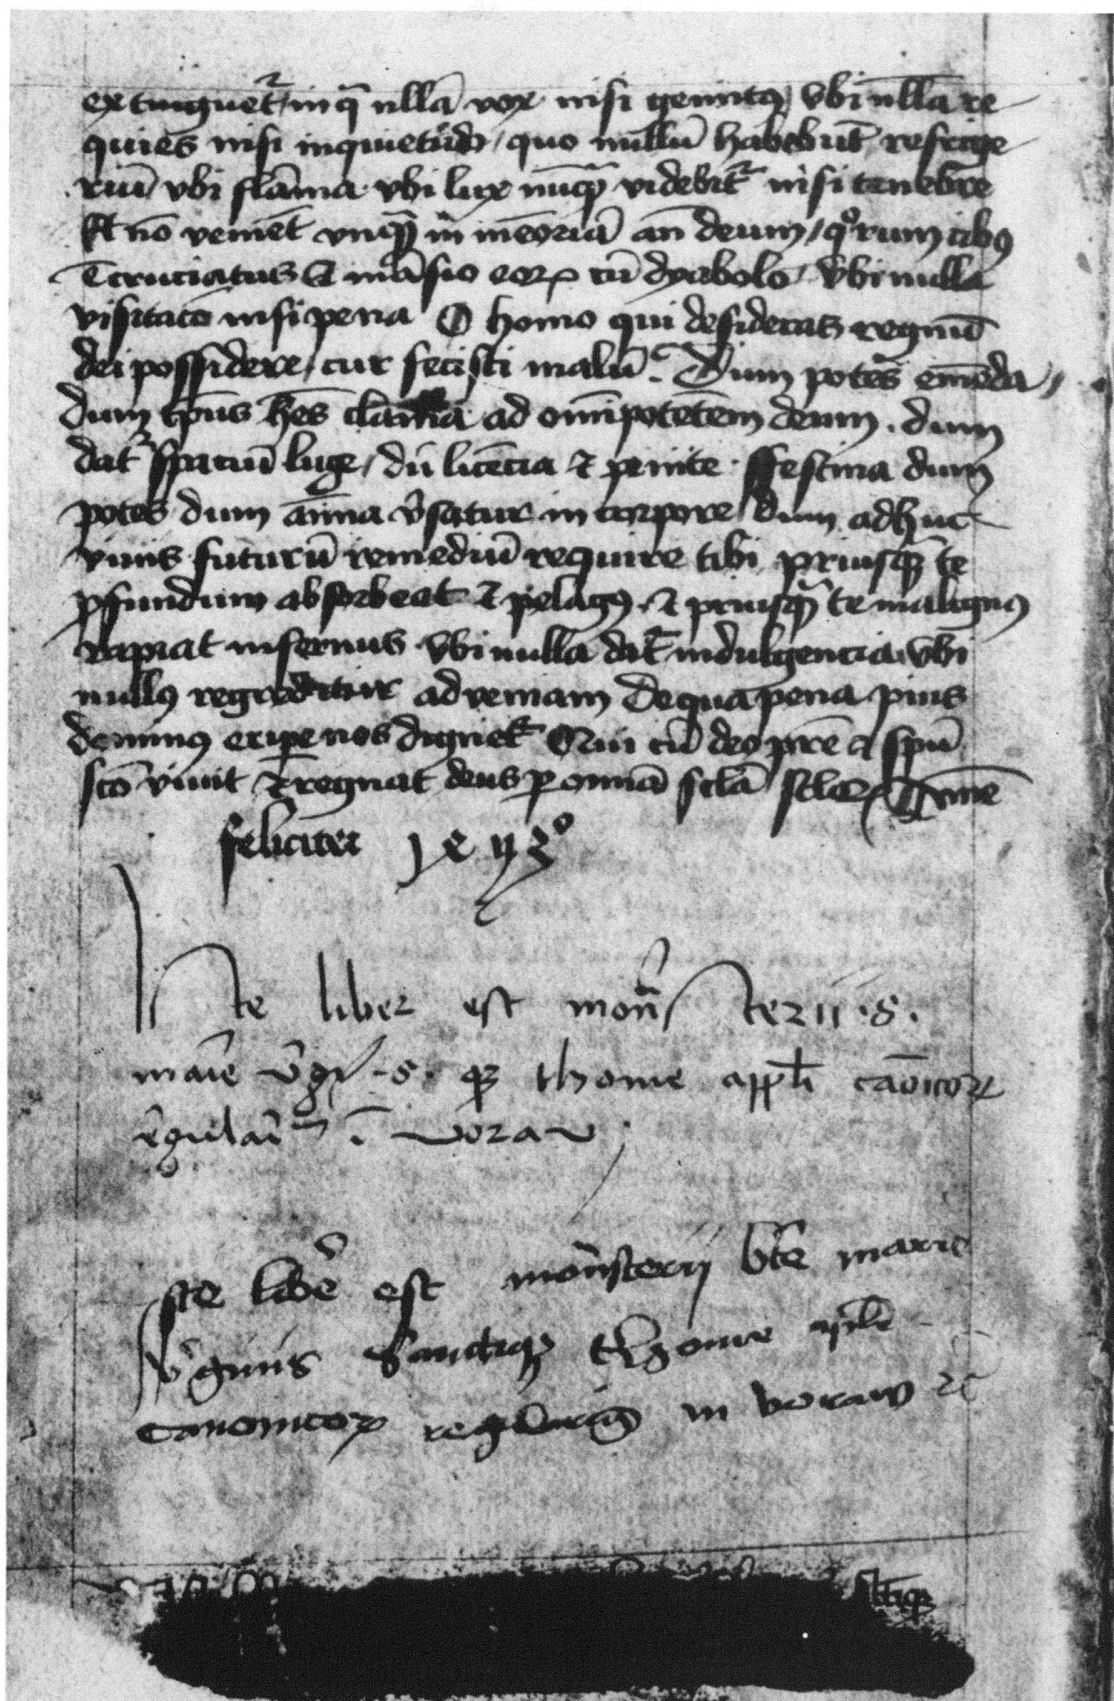 extinguet᷑ / in qͣ nulla vox nisi gemitꝯ vbi nulla re
quies nisi inquietudo / quo nullū habebūt refrige
riū vbi flamma vbi lux nūqͣ videbit᷑ nisi tenebre
Et nō veniēt vnqͣ in memoriā an̄ deum / qͦrum cibꝯ
ē cruciatus ⁊ māsio eoꝝ cū dyabolo vbi nulla
visitacō nisi pena O homo qui desideras regnū
dei possidere / cur fecisti malū. Dum potes emēda /
dum tp̄us hēs clama ad om̄ipotētem deum . dum
dat᷑ spaciū luge / dū licēcia ⁊ penite . ffestina dum
potes dum anima v̓satur in corpore dum adhuc
viuis futurū remediū require tibi priusqͣ te
ꝓfundum absorbeat ⁊ pelagꝯ . ⁊ priusqͣ te malignꝯ
rapiat infernus . vbi nulla dat᷑ indulgencia vbi
nullꝯ regreditur ad veniam De qua pena pius
dominꝯ eripe nos dignet᷑ Qui cū deo pr̄e ⁊ sp̄u
sc̄o viuit ⁊ regnat deus ꝑ omnia sc̄la sc̄loꝝ Amē
feliciter
Iste liber est mon̄sterii .s.
marie v̄gīs .s. qꝫ thome appl̄i cāoicoꝝ
r̄gulariū ī voraw
Iste liber est mon̄sterij bt̄e marie
v̓ginis Sanctiqꝫ thome apl̄i
Canonicoꝝ regulariū in voraw ⁊c̄
sc̄tiqꝫ